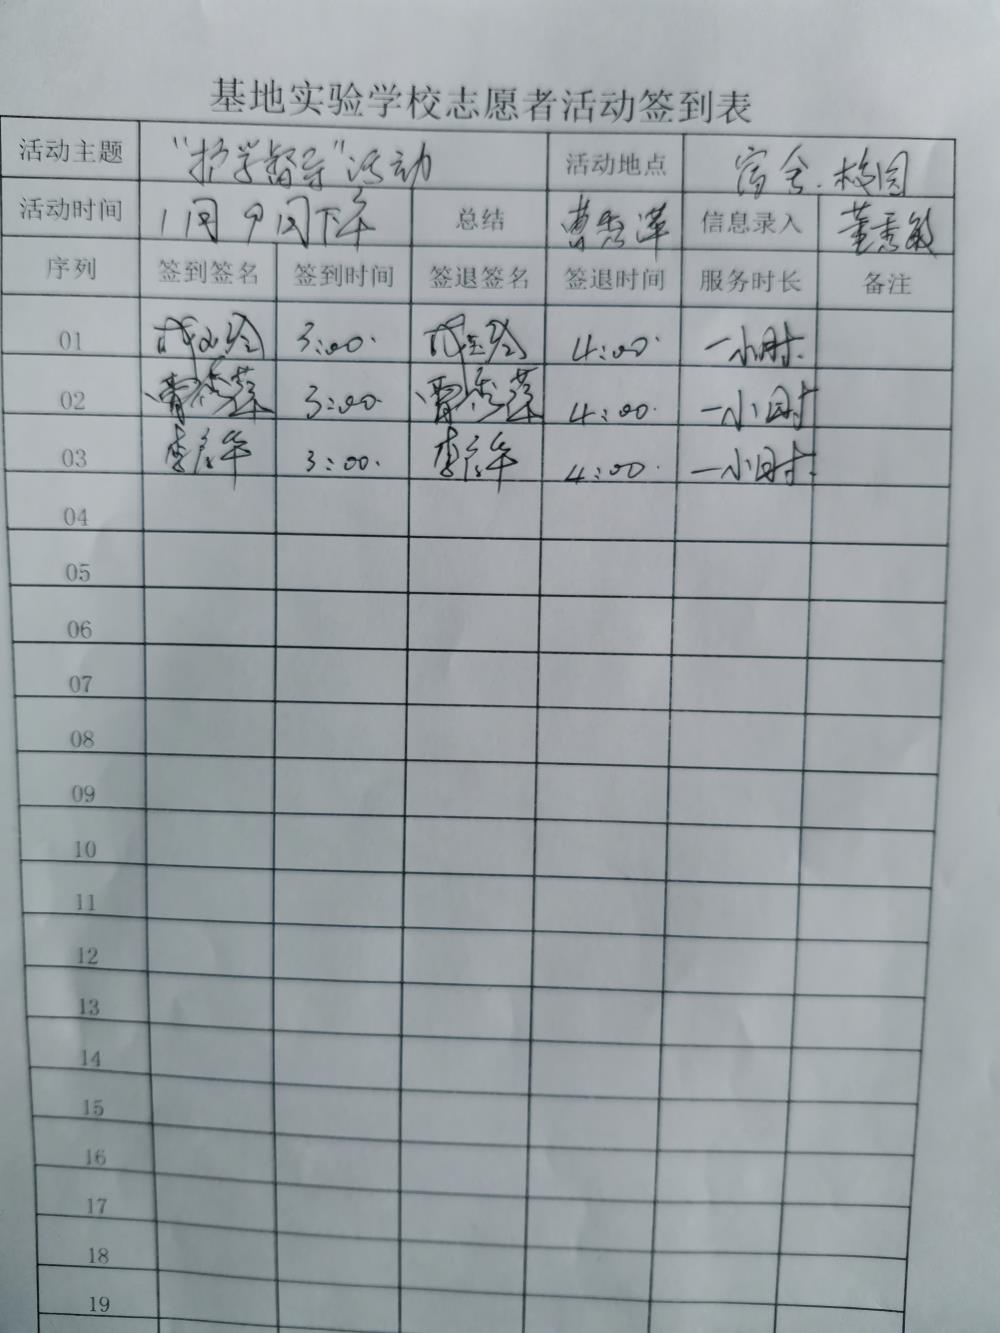 基地实验学校志愿者活动签到表
活动主题 “护学督导”活动 活动地点 宿舍.校园
活动时间 1月9日下午 总结 曹秀莲 信息录入 董秀敏
序列 签到签名 签到时间 签退签名 签退时间 服务时长 备注
01 3:00. 4:00. 一小时.
02 曹秀莲 3:00 曹秀莲 4:00. 一小时
03 3:00. 4:00. 一小时.
04
05
06
07
08
09
10
11
12
13
14
15
16
17
18
19